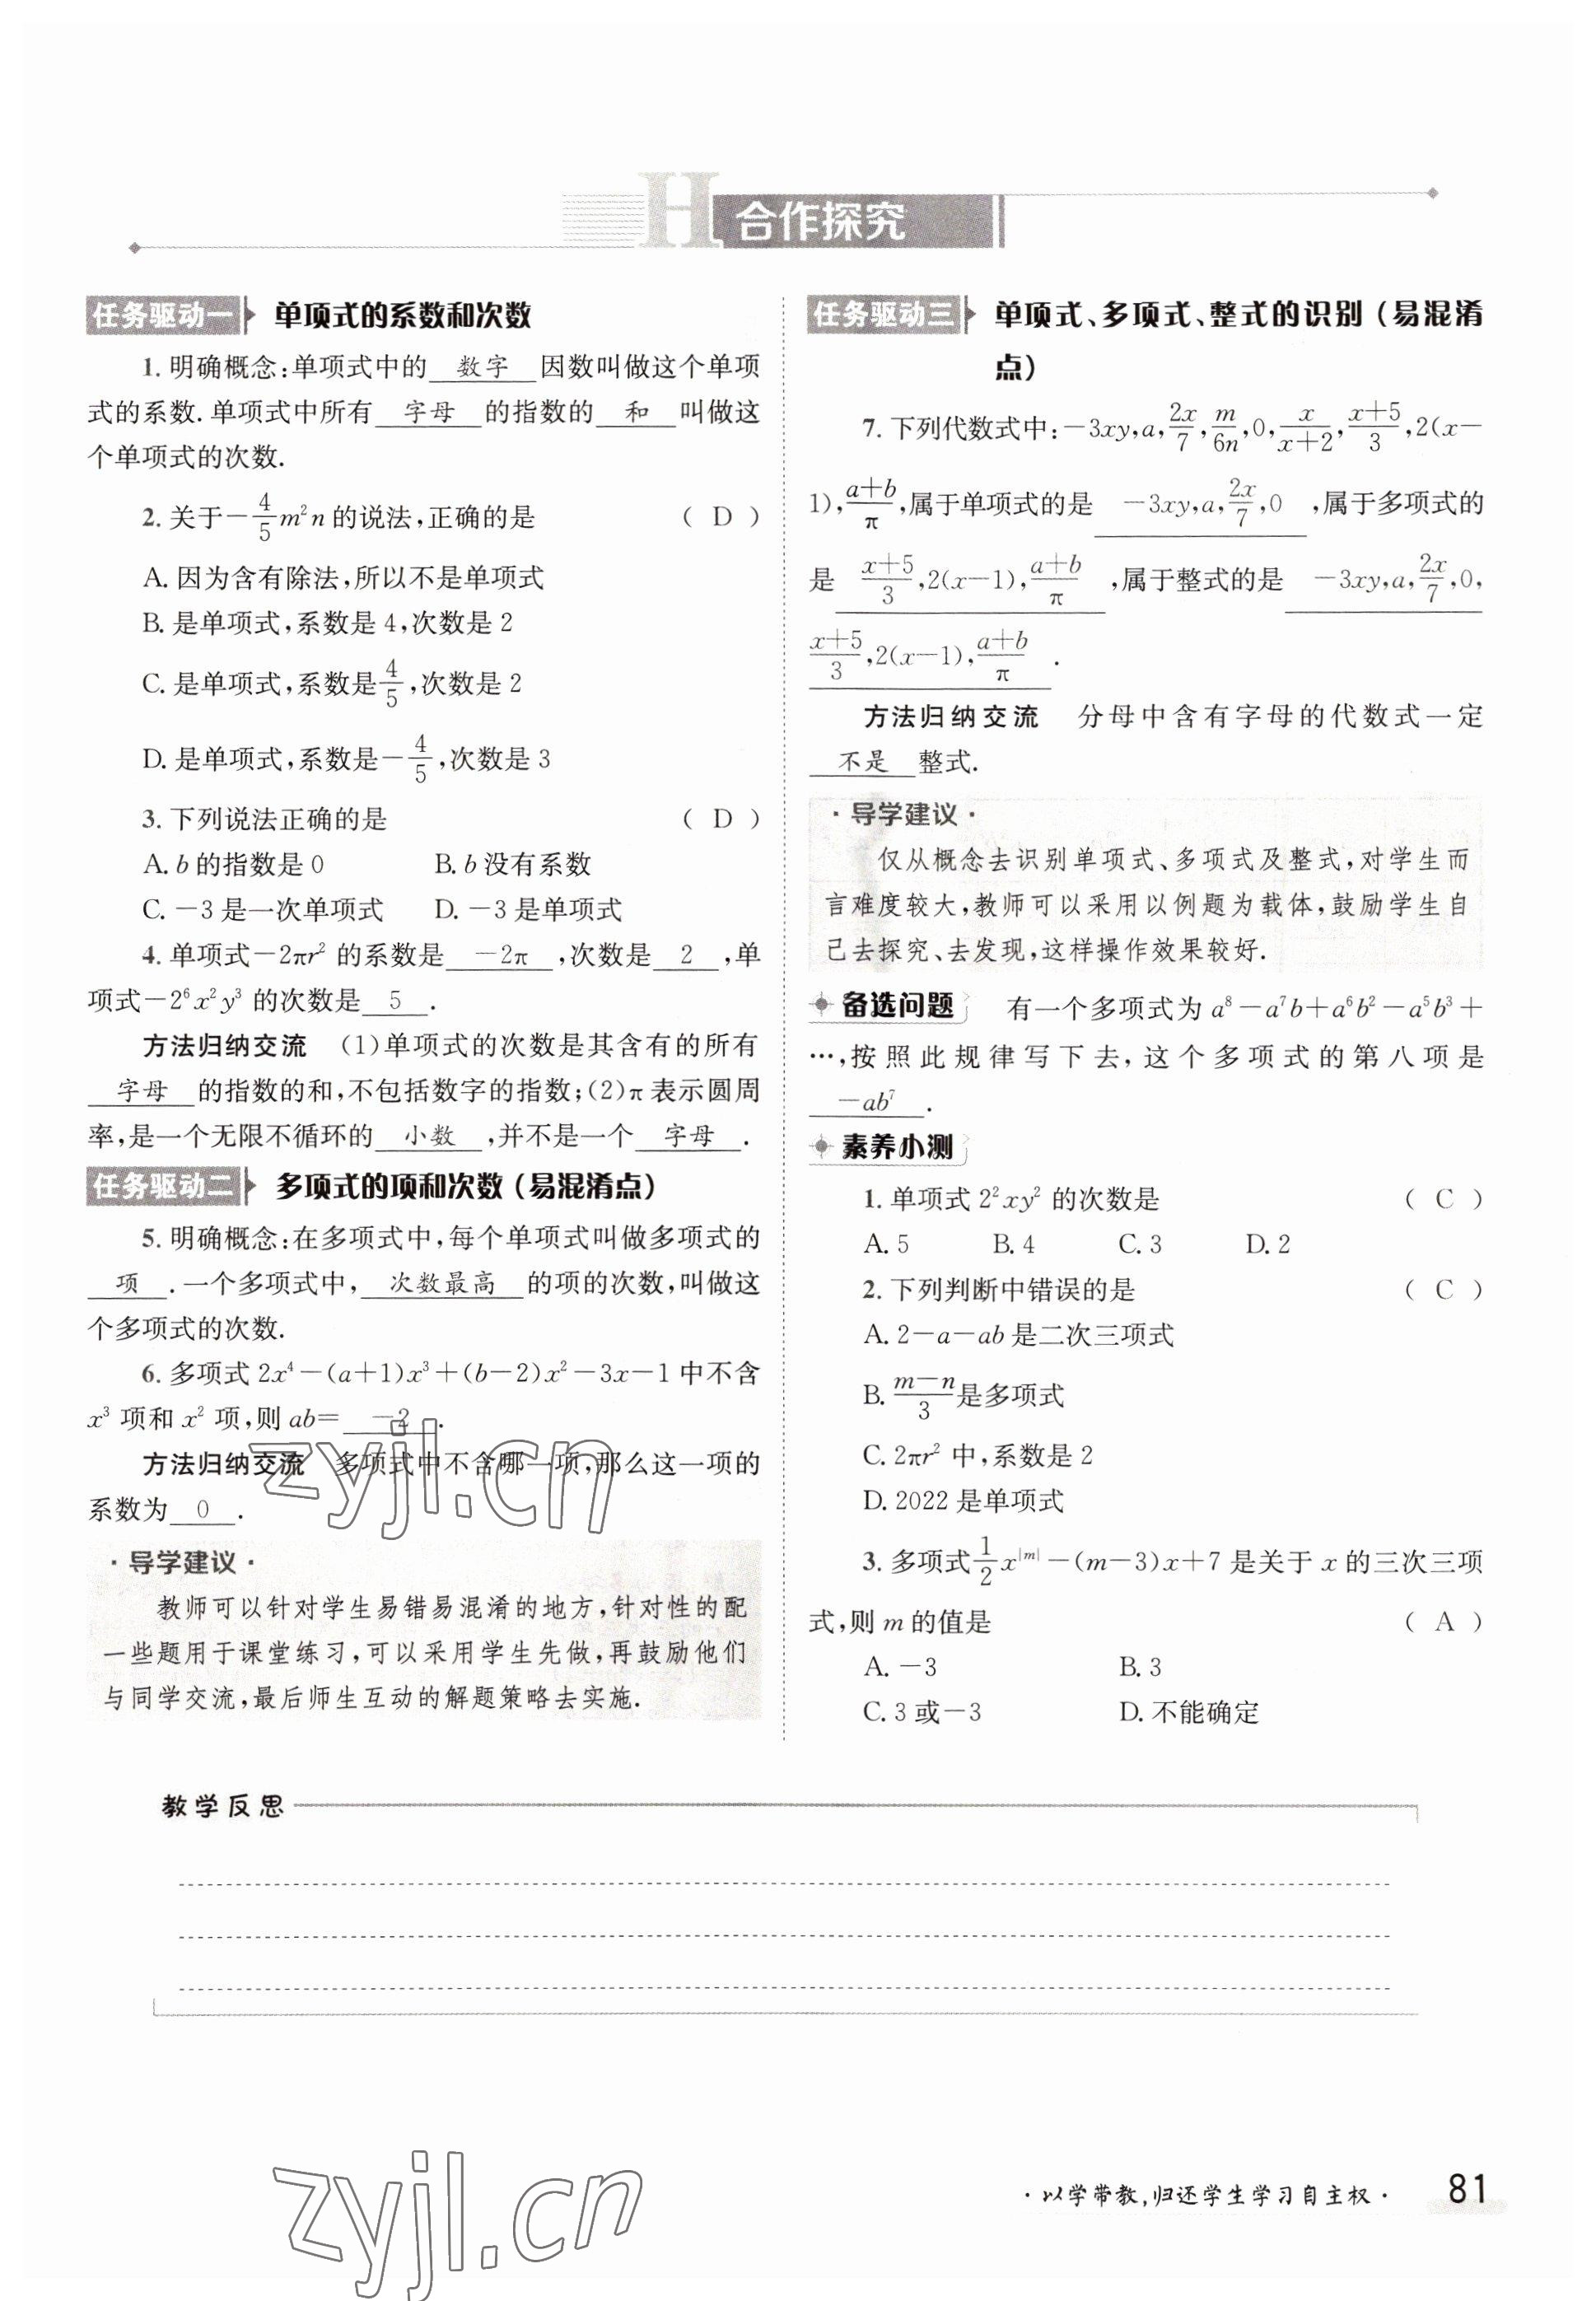 H 合作探究
任务驱动一 单项式的系数和次数
1. 明确概念:单项式中的 数字 因数叫做这个单项
式的系数. 单项式中所有 字母 的指数的 和 叫做这
个单项式的次数.
2. 关于-4/5 m²n 的说法,正确的是 ( D )
A. 因为含有除法,所以不是单项式
B. 是单项式,系数是 4,次数是 2
C. 是单项式,系数是4/5,次数是 2
D. 是单项式,系数是-4/5,次数是 3
3. 下列说法正确的是 ( D )
A. b 的指数是 0 B. b 没有系数
C. -3 是一次单项式 D. -3 是单项式
4. 单项式-2πr² 的系数是 -2π ,次数是 2 ,单
项式-2⁶x²y³ 的次数是 5 .
方法归纳交流 (1)单项式的次数是其含有的所有
字母 的指数的和,不包括数字的指数;(2)π 表示圆周
率,是一个无限不循环的 小数 ,并不是一个 字母 .
任务驱动二 多项式的项和次数(易混淆点)
5. 明确概念:在多项式中,每个单项式叫做多项式的
项 . 一个多项式中, 次数最高 的项的次数,叫做这
个多项式的次数.
6. 多项式 2x⁴-(a+1)x³+(b-2)x²-3x-1 中不含
x³ 项和 x² 项,则 ab= -2 .
方法归纳交流 多项式中不含哪一项,那么这一项的
系数为 0 .
· 导学建议 ·
教师可以针对学生易错易混淆的地方,针对性的配
一些题用于课堂练习,可以采用学生先做,再鼓励他们
与同学交流,最后师生互动的解题策略去实施.
任务驱动三 单项式、多项式、整式的识别(易混淆
点)
7. 下列代数式中:-3xy,a,2x/7,m/6n,0,x/(x+2),(x+5)/3,2(x-
1),(a+b)/π,属于单项式的是 -3xy,a,2x/7,0 ,属于多项式的
是 (x+5)/3,2(x-1),(a+b)/π ,属于整式的是 -3xy,a,2x/7,0,
(x+5)/3,2(x-1),(a+b)/π .
方法归纳交流 分母中含有字母的代数式一定
不是 整式.
· 导学建议 ·
仅从概念去识别单项式、多项式及整式,对学生而
言难度较大,教师可以采用以例题为载体,鼓励学生自
己去探究、去发现,这样操作效果较好.
备选问题 有一个多项式为 a⁸-a⁷b+a⁶b²-a⁵b³+
…,按照此规律写下去,这个多项式的第八项是
-ab⁷ .
素养小测
1. 单项式 2²xy² 的次数是 ( C )
A. 5 B. 4 C. 3 D. 2
2. 下列判断中错误的是 ( C )
A. 2-a-ab 是二次三项式
B. (m-n)/3是多项式
C. 2πr² 中,系数是 2
D. 2022 是单项式
3. 多项式1/2 x^|m|-(m-3)x+7 是关于 x 的三次三项
式,则 m 的值是 ( A )
A. -3 B. 3
C. 3 或-3 D. 不能确定
zyjl.cn
教学反思
zyjl.cn
· 以学带教,归还学生学习自主权 · 81